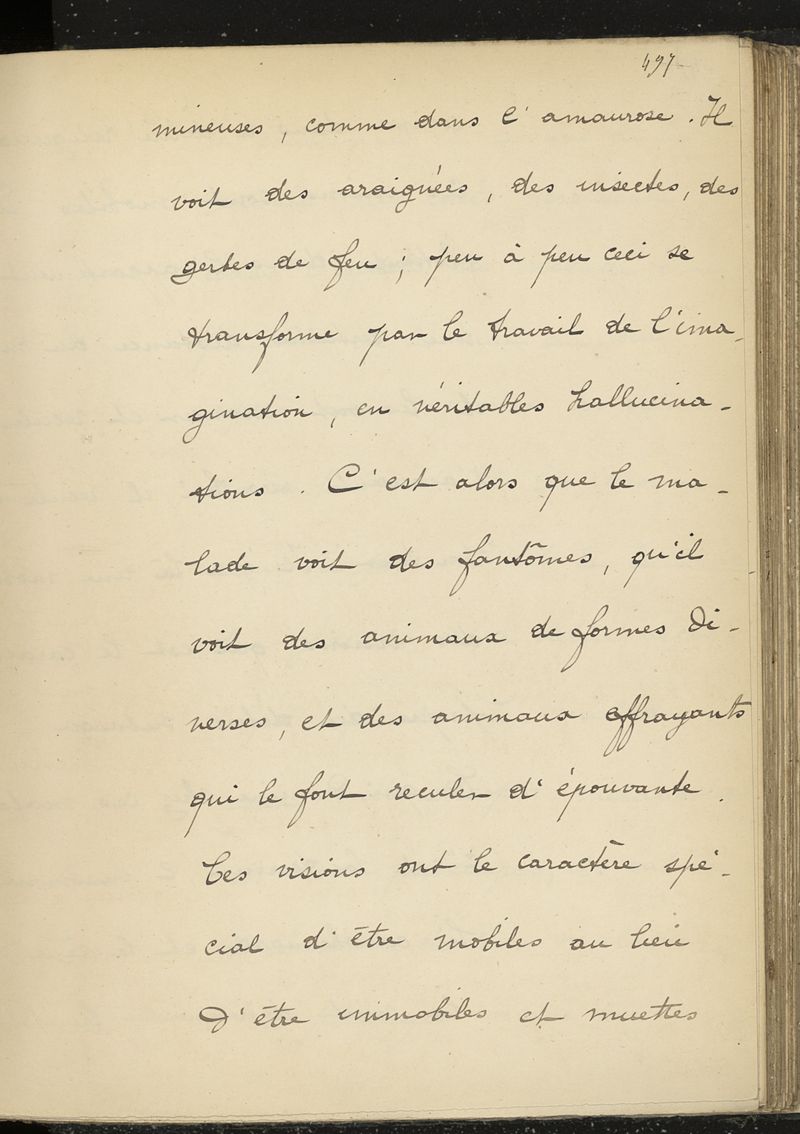 497
mineuses, comme dans l'amaurose. Il
voit des araignées, des insectes, des
gerbes de feu ; peu à peu ceci se
transforme par le travail de l'ima-
gination, en véritables hallucina-
tions. C'est alors que le ma-
lade voit des fantômes, qu'il
voit des animaux de formes di-
verses, et des animaux effrayants
qui le font reculer d'épouvante.
Ces visions ont le caractère spé-
cial d'être mobiles au lieu
d'être immobiles et muettes